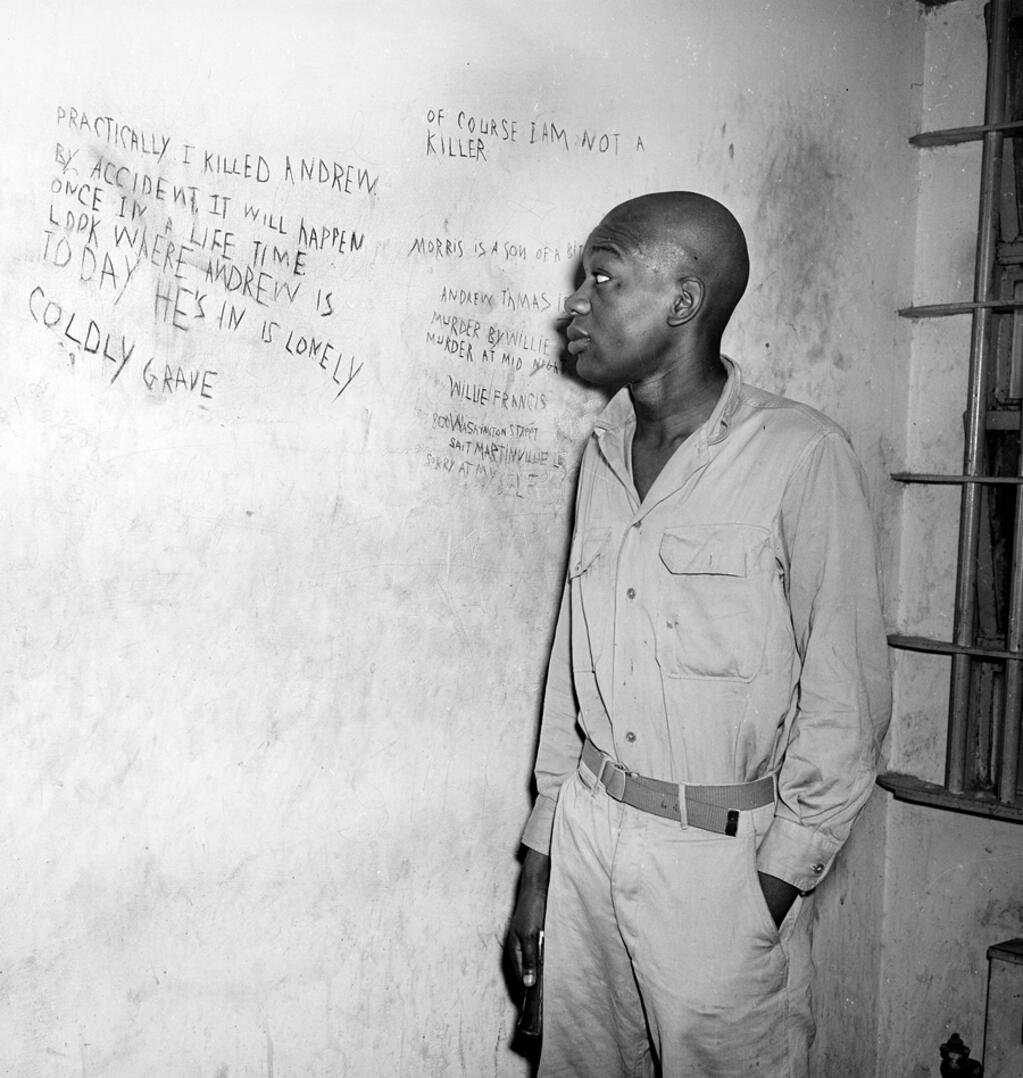 PRACTICALLY I KILLED ANDREW
BY ACCIDENT. IT WILL HAPPEN
ONCE IN A LIFE TIME
LOOK WHERE ANDREW IS
TODAY HE'S IN IS LONELY
COLDLY GRAVE
OF COURSE I AM NOT A
KILLER
MORRIS IS A SON OF A BIT
ANDREW THMAS
MURDER BY WILLIE
MURDER AT MID NIGHT
WILLIE FRANCIS
800 WASHINGTON
SAIT MARTINVILLE
SORRY AT MY SELF